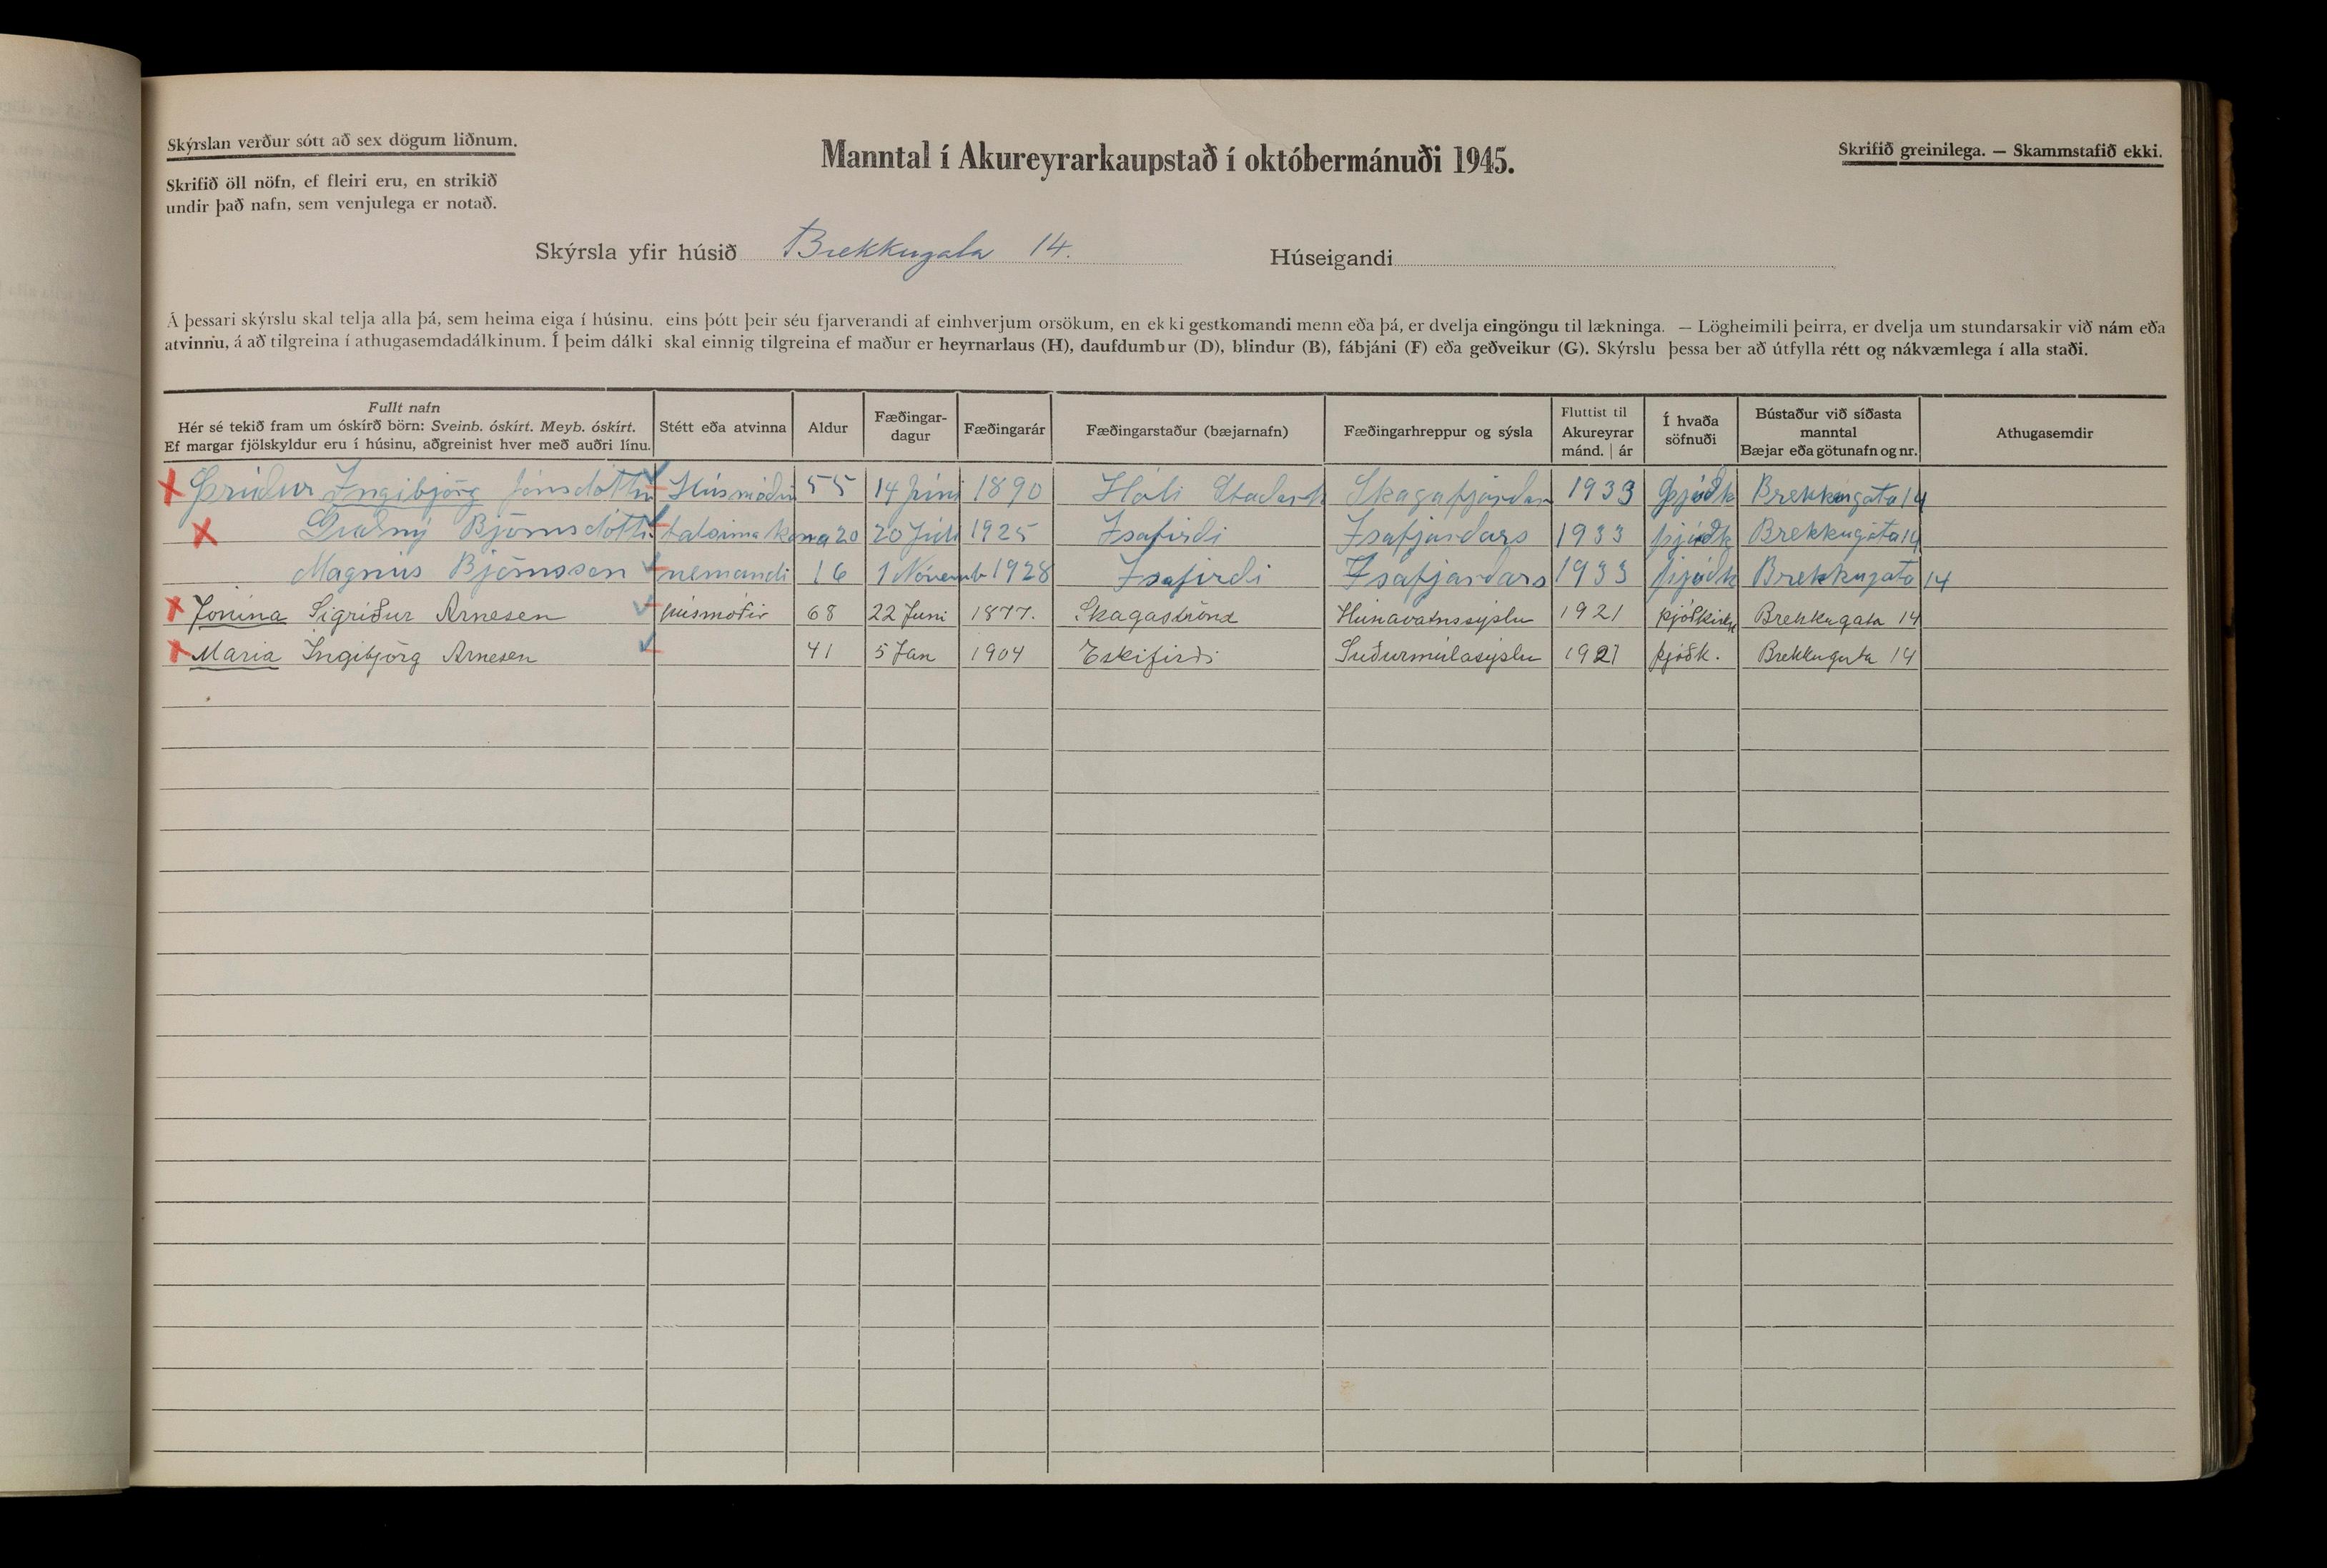 Skýrslan verður sótt að sex dögum liðnum.
Skrifið öll nöfn, ef fleiri eru, en strikið
undir það nafn, sem venjulega er notað.
Manntal í Akureyrarkaupstað í októbermánuði 1945.
Skrifið greinilega. — Skammstafið ekki.
Skýrsla yfir húsið Brekkugata 14.
Húseigandi
Á þessari skýrslu skal telja alla þá, sem heima eiga í húsinu, eins þótt þeir séu fjarverandi af einhverjum orsökum, en ekki gestkomandi menn eða þá, er dvelja eingöngu til lækninga. — Lögheimili þeirra, er dvelja um stundarsakir við nám eða
atvinnu, á að tilgreina í athugasemdadálkinum. Í þeim dálki skal einnig tilgreina ef maður er heyrnarlaus (H), daufdumbur (D), blindur (B), fábjáni (F) eða geðveikur (G). Skýrslu þessa ber að útfylla rétt og nákvæmlega í alla staði.
Fullt nafn
Hér sé tekið fram um óskírð börn: Sveinb. óskírt. Meyb. óskírt.
Ef margar fjölskyldur eru í húsinu, aðgreinist hver með auðri línu.
Stétt eða atvinna
Aldur
Fæðingar-
dagur
Fæðingarár
Fæðingarstaður (bæjarnafn)
Fæðingarhreppur og sýsla
Fluttist til
Akureyrar
mánd. | ár
Í hvaða
söfnuði
Bústaður við síðasta
manntal
Bæjar eða götunafn og nr.
Athugasemdir
Þrúður Ingibjörg Jónsdóttir Húsmóðir 55 14 Júní 1890 Hóli Skagafjarðar 1933 Þjóðk Brekkugata 14
Guðný Björnsdóttir talsímakona 20 20 Júlí 1925 Isafirdi Isafjardars 1933 þjóðk Brekkugata 14
Magnús Björnsson nemandi 16 1 Nóvemb 1928 Isafirdi Isafjardars 1933 þjóðk Brekkugata 14
Jonina Sigriður Arnesen húsmóðir 68 22 Juni 1877. Skagaströnd Húnavatnssýslu 1921 þjóðkirkj Brekkugata 14
Maria Ingibjörg Arnesen 41 5 Jan 1904 Eskifirði Suðurmúlasýslu 1921 þjóðk. Brekkugata 14